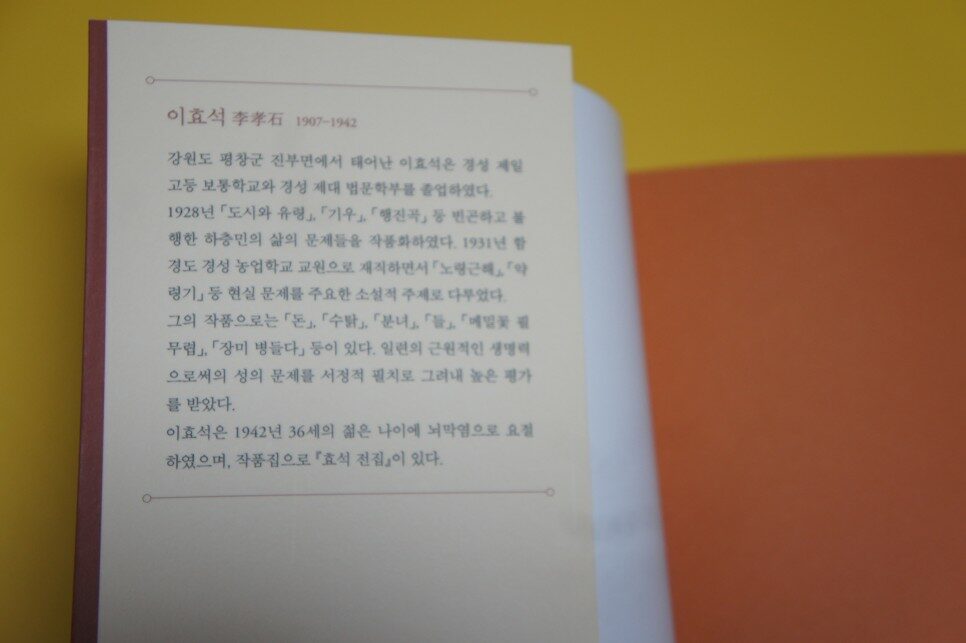 이효석 李孝石 1907-1942
강원도 평창군 진부면에서 태어난 이효석은 경성 제일
고등 보통학교와 경성 제대 법문학부를 졸업하였다.
1928년 「도시와 유령」, 「기우」, 「행진곡」 등 빈곤하고 불
행한 하층민의 삶의 문제들을 작품화하였다. 1931년 함
경도 경성 농업학교 교원으로 재직하면서 「노령근해」, 「약
령기」 등 현실 문제를 주요한 소설적 주제로 다루었다.
그의 작품으로는 「돈」, 「수탉」, 「분녀」, 「들」, 「메밀꽃 필
무렵」, 「장미 병들다」 등이 있다. 일련의 근원적인 생명력
으로써의 성의 문제를 서정적 필치로 그려내 높은 평가
를 받았다.
이효석은 1942년 36세의 젊은 나이에 뇌막염으로 요절
하였으며, 작품집으로 『효석 전집』이 있다.